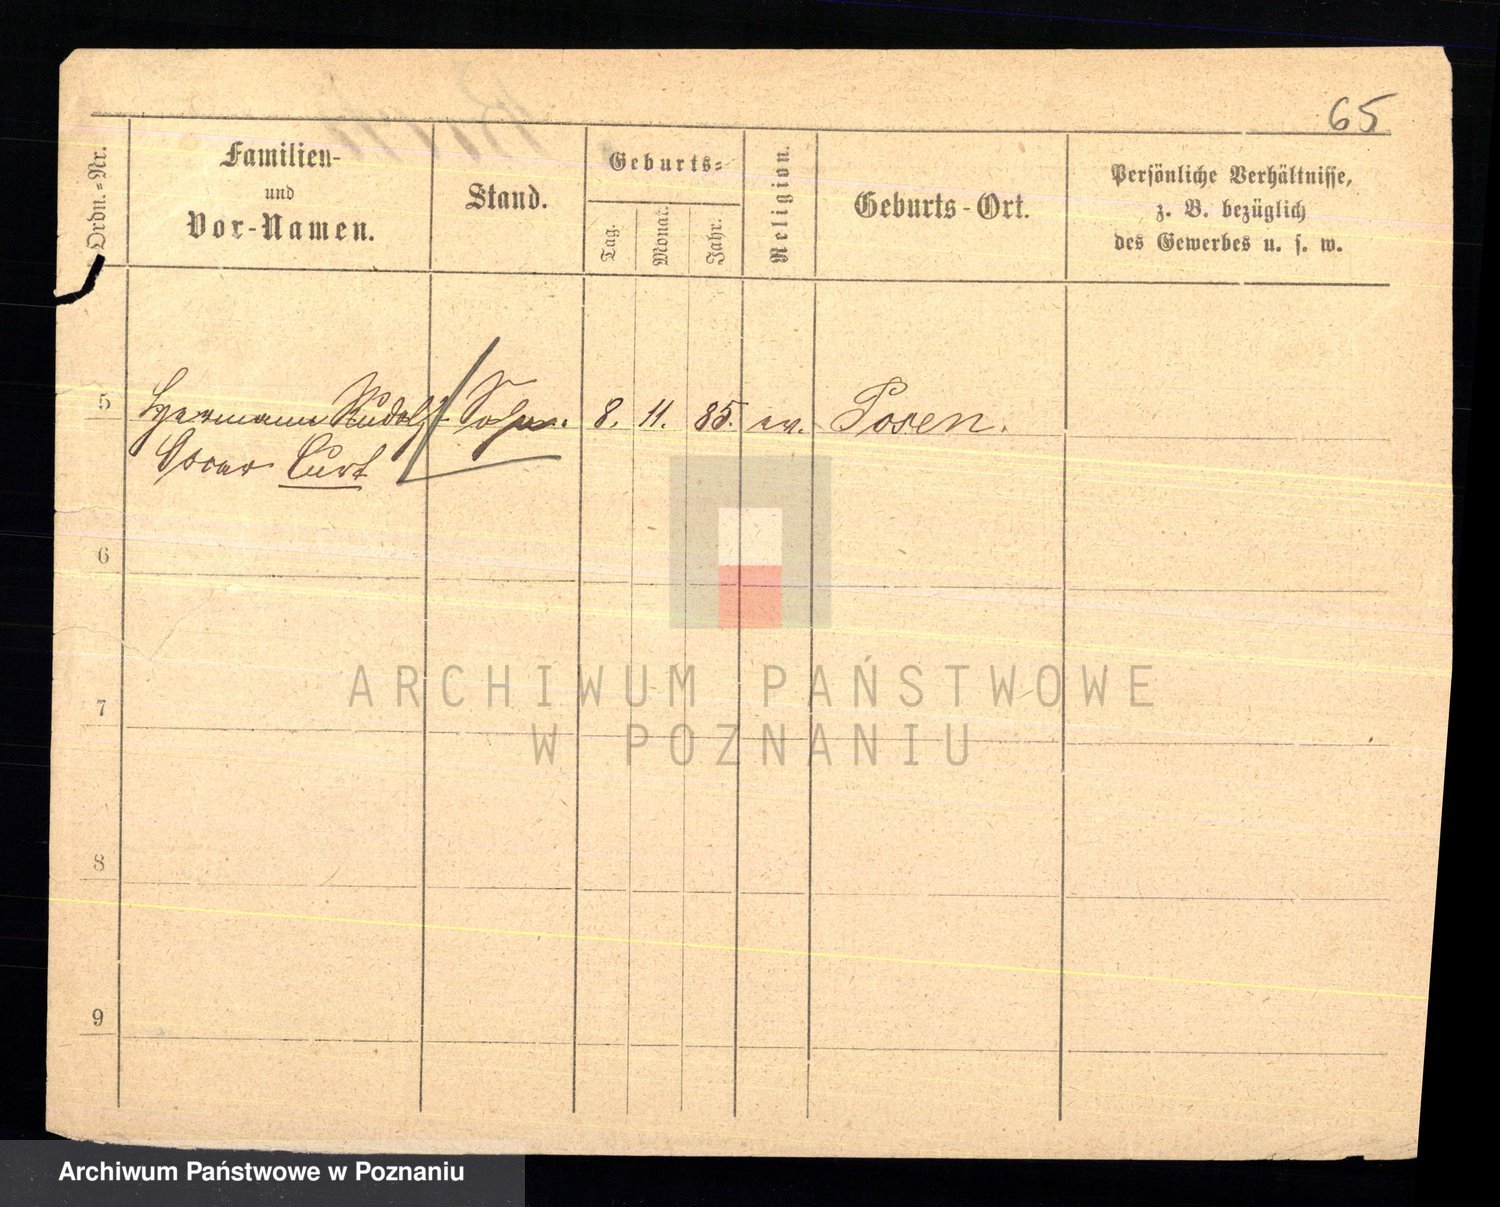 65
Ordn.-Nr.
Familien-
und
Vor-Namen.
Stand.
Geburts-
Tag.
Monat.
Jahr.
Religion.
Geburts-Ort.
Persönliche Verhältnisse,
z. B. bezüglich
des Gewerbes u. s. w.
5 Hermann Rudolf Sohn. 8. 11. 85. ev. Posen.
Oscar Curt
6
7
8
9
ARCHIWUM PAŃSTWOWE
W POZNANIU
Archiwum Państwowe w Poznaniu